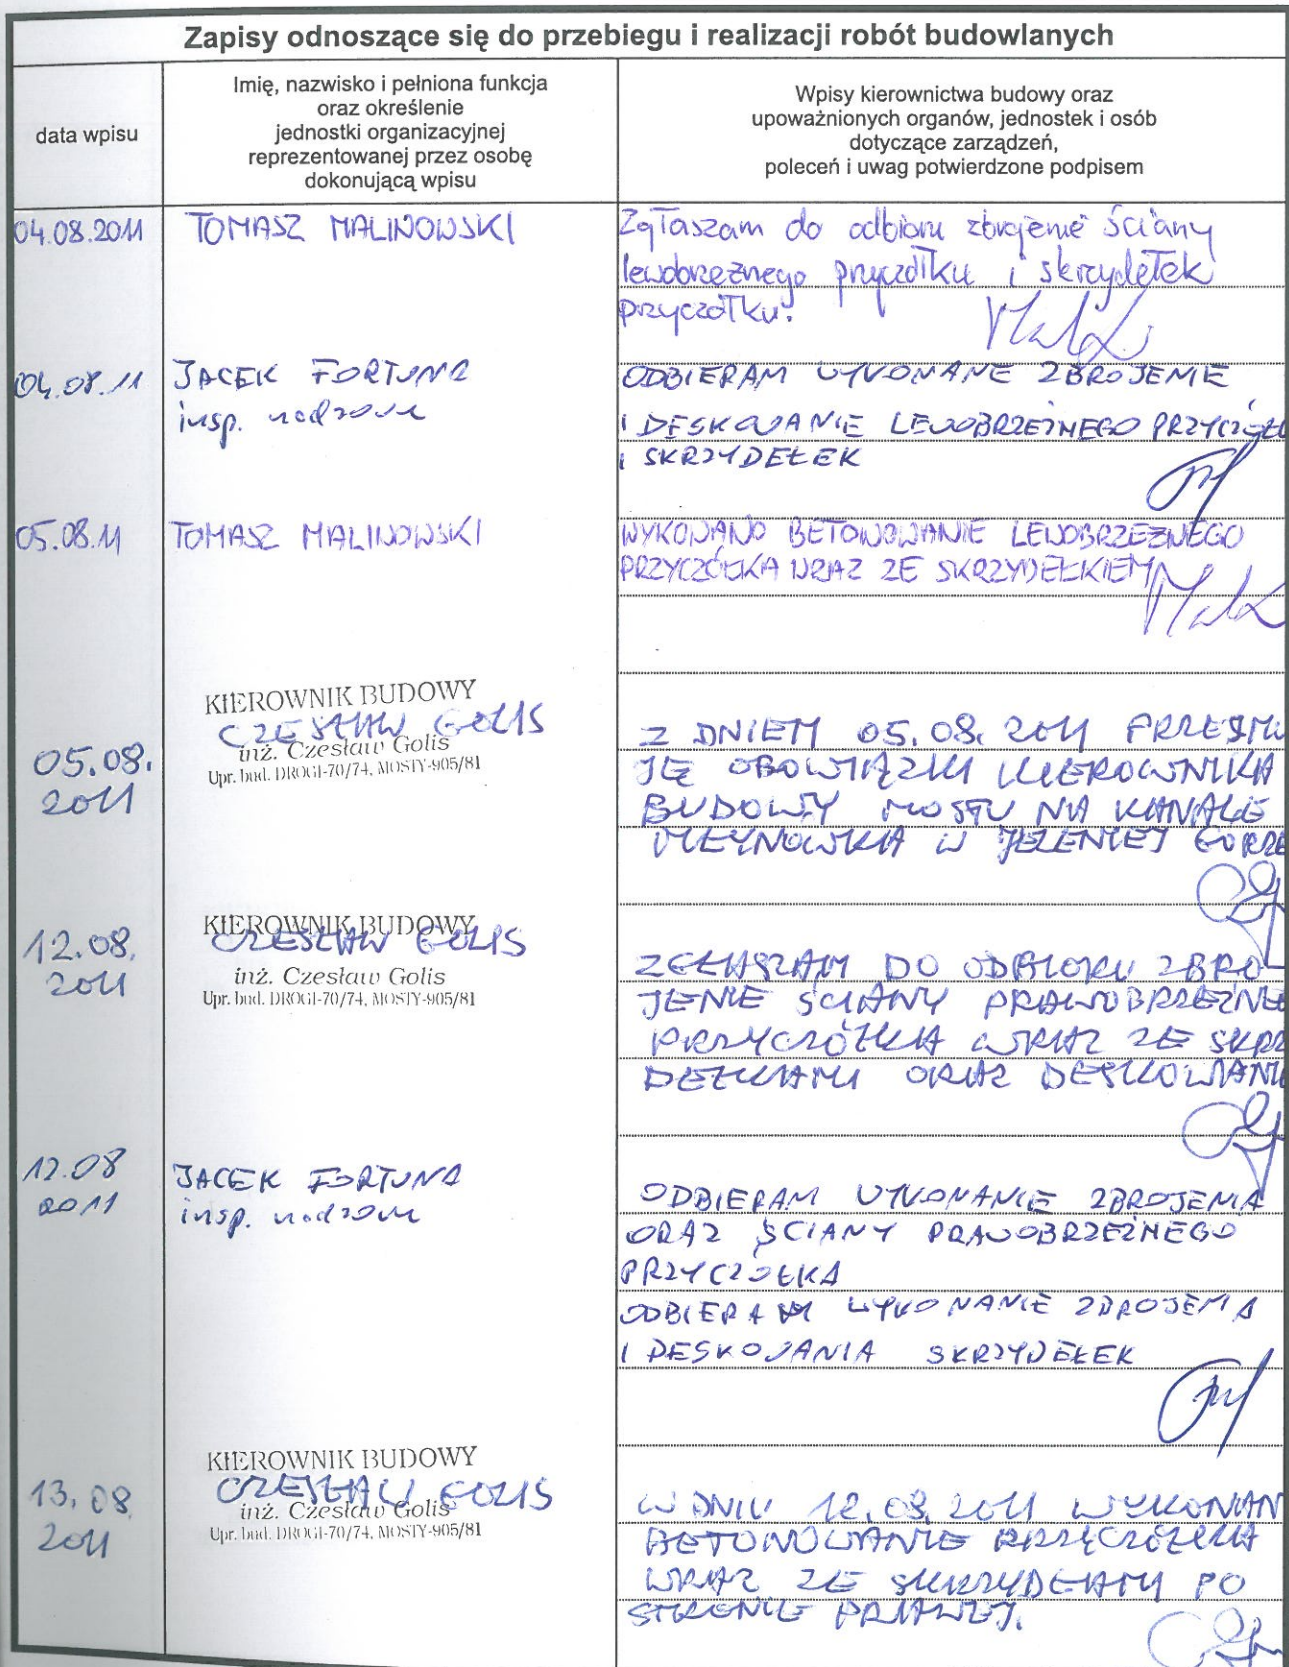 Zapisy odnoszące się do przebiegu i realizacji robót budowlanych
data wpisu
Imię, nazwisko i pełniona funkcja
oraz określenie
jednostki organizacyjnej
reprezentowanej przez osobę
dokonującą wpisu
Wpisy kierownictwa budowy oraz
upoważnionych organów, jednostek i osób
dotyczące zarządzeń,
poleceń i uwag potwierdzone podpisem
04.08.2011 TOMASZ MALINOWSKI
Zgłaszam do odbioru zbrojenie ściany
lewobrzeżnego przyczółku i skrzydełek
przyczółku.
04.08.11 JACEK FORTUNA
insp. nadzoru
ODBIERAM WYKONANE ZBROJENIE
I DESKOWANIE LEWOBRZEŻNEGO PRZYCZÓŁ
I SKRZYDEŁEK
05.08.11 TOMASZ MALINOWSKI
WYKONANO BETONOWANIE LEWOBRZEŻNEGO
PRZYCZÓŁKA WRAZ ZE SKRZYDEŁKIEM
05.08.
2011
KIEROWNIK BUDOWY
CZESŁAW GOLIS
inż. Czesław Golis
Upr. bud. DROGI-70/74, MOSTY-905/81
Z DNIEM 05.08.2011 PRZEJMU
JĘ OBOWIĄZKI KIEROWNIKA
BUDOWY MOSTU NA KANALE
MŁYNÓWKA W JELENIEJ GÓRZE
12.08.
2011
KIEROWNIK BUDOWY
CZESŁAW GOLIS
inż. Czesław Golis
Upr. bud. DROGI-70/74, MOSTY-905/81
ZGŁASZAM DO ODBIORU ZBRO-
JENIE ŚCIANY PRAWOBRZEŻNE
PRZYCZÓŁKA WRAZ ZE SKRZ
DEŁKAMI ORAZ DESKOWANI
12.08
2011
JACEK FORTUNA
insp. nadzoru
ODBIERAM WYKONANIE ZBROJENIA
ORAZ ŚCIANY PRAWOBRZEŻNEGO
PRZYCZÓŁKA
ODBIERAM WYKONANIE ZBROJENIA
I DESKOWANIA SKRZYDEŁEK
13.08
2011
KIEROWNIK BUDOWY
CZESŁAW GOLIS
inż. Czesław Golis
Upr. bud. DROGI-70/74, MOSTY-905/81
W DNIU 12.08.2011 WYKONAN
BETONOWANIE PRZYCZÓŁKA
WRAZ ZE SKRZYDEŁAMI PO
STRONIE PRAWEJ.